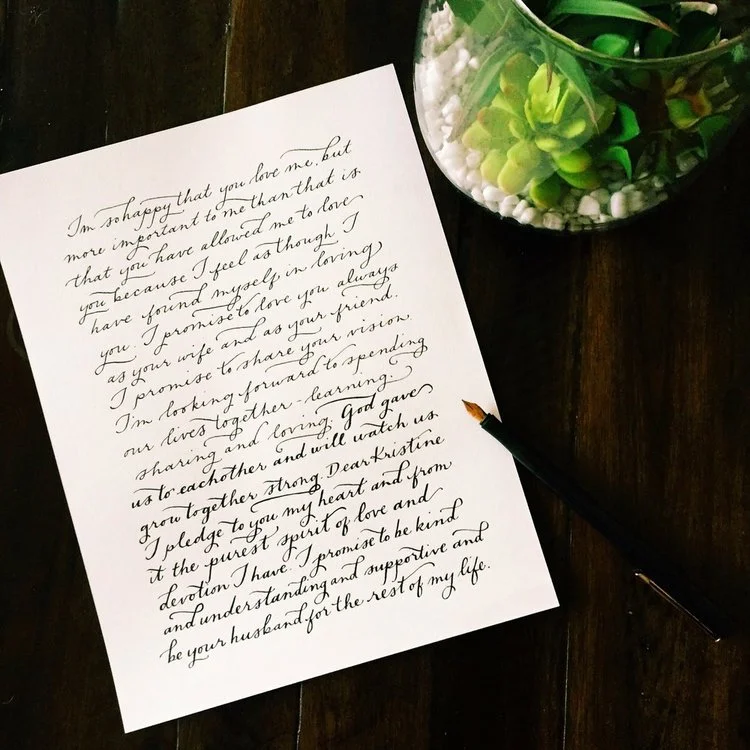 I'm so happy that you love me, but
more important to me than that is
that you have allowed me to love
you because I feel as though I
have found myself in loving
you. I promise to love you always
as your wife and as your friend.
I promise to share your vision.
I'm looking forward to spending
our lives together - learning
sharing and loving. God gave
us to eachother and will watch us
grow together strong. Dear Kristine
I pledge to you my heart and from
it the purest spirit of love and
devotion I have. I promise to be kind
and understanding and supportive and
be your husband for the rest of my life.